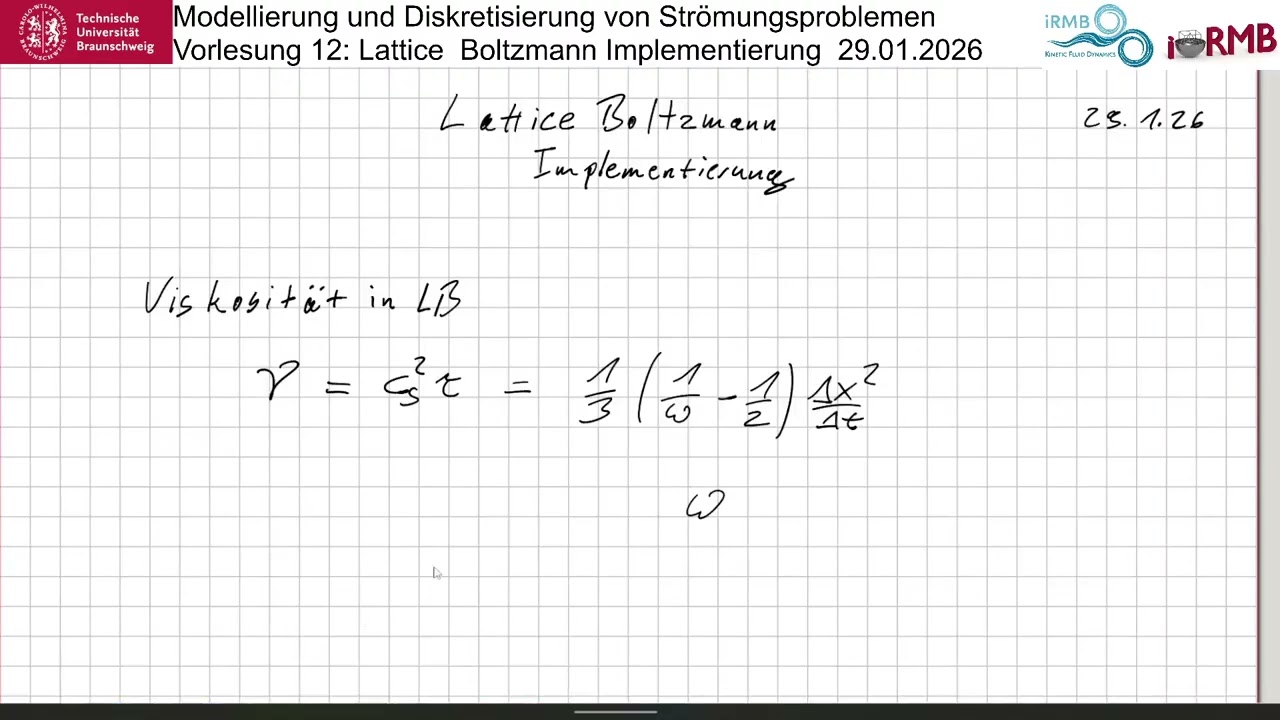 Technische
Universität
Braunschweig
Modellierung und Diskretisierung von Strömungsproblemen
Vorlesung 12: Lattice Boltzmann Implementierung 29.01.2026
iRMB
KINETIC FLUID DYNAMICS
iRMB
Lattice Boltzmann
Implementierung
29.1.26
Viskosität in LB
ν = c_s^2 τ = 1/3 (1/ω - 1/2) Δx^2/Δt
ω